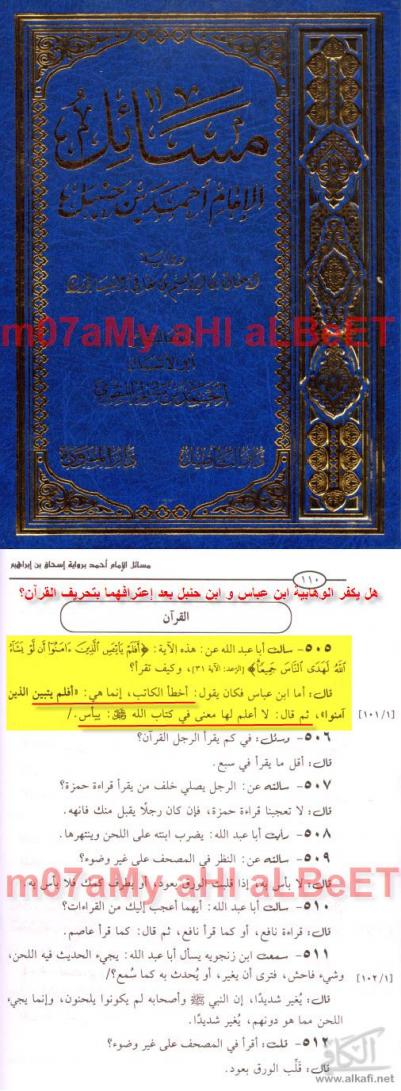 مسائل
الإمام أحمد بن حنبل
m07aMy aHl aLBeET
مسائل الإمام أحمد برواية إسحاق بن إبراهيم
١١٠
هل يكفر الوهابية ابن عباس و ابن حنبل بعد إعترافهما بتحريف القرآن؟
القرآن
٥٠٥- سألت أبا عبد الله عن: هذه الآية: ﴿أَفَلَمْ يَاْيْـَٔسِ ٱلَّذِينَ ءَامَنُوٓا۟ أَن لَّوْ يَشَآءُ
ٱللَّهُ لَهَدَى ٱلنَّاسَ جَمِيعًا﴾ [الرعد: الآية ٣١]، وكيف تقرأ؟
قال: أما ابن عباس فكان يقول: أخطأ الكاتب، إنما هي: «أفلم يتبين الذين
آمنوا»، ثم قال: لا أعلم لها معنى في كتاب الله ﷺ: ييأس./
[١٠١/١]
٥٠٦- وسئل: في كم يقرأ الرجل القرآن؟
قال: أقل ما يقرأ في سبع.
٥٠٧- سألته عن: الرجل يصلي خلف من يقرأ قراءة حمزة؟
قال: لا تعجبنا قراءة حمزة، فإن كان رجلًا يقبل منك فانهه.
٥٠٨- رأيت أبا عبد الله: يضرب ابنته على اللحن وينتهرها.
٥٠٩- سألته عن: النظر في المصحف على غير وضوء؟
m07aMy aHl aLBeET
قال: لا بأس به، إذا قلبت الورق بعود، أو بطرف كمك فلا بأس به.
٥١٠- سألت أبا عبد الله: أيهما أعجب إليك من القراءات؟
قال: قراءة نافع، أو كما قرأ نافع، ثم قال: كما قرأ عاصم.
٥١١- سمعت ابن زنجويه يسأل أبا عبد الله: يجيء الحديث فيه اللحن،
وشيء فاحش، فترى أن يغير، أو يُحدث به كما سُمع؟/
[١٠٢/١]
قال: يُغير شديدًا، إن النبي ﷺ وأصحابه لم يكونوا يلحنون، وإنما يجيء
اللحن مما هو دونهم، يُغير شديدًا.
٥١٢- قلت: أقرأ في المصحف على غير وضوء؟
قال: قلِّب الورق بعود.
الكافي
www.alkafi.net